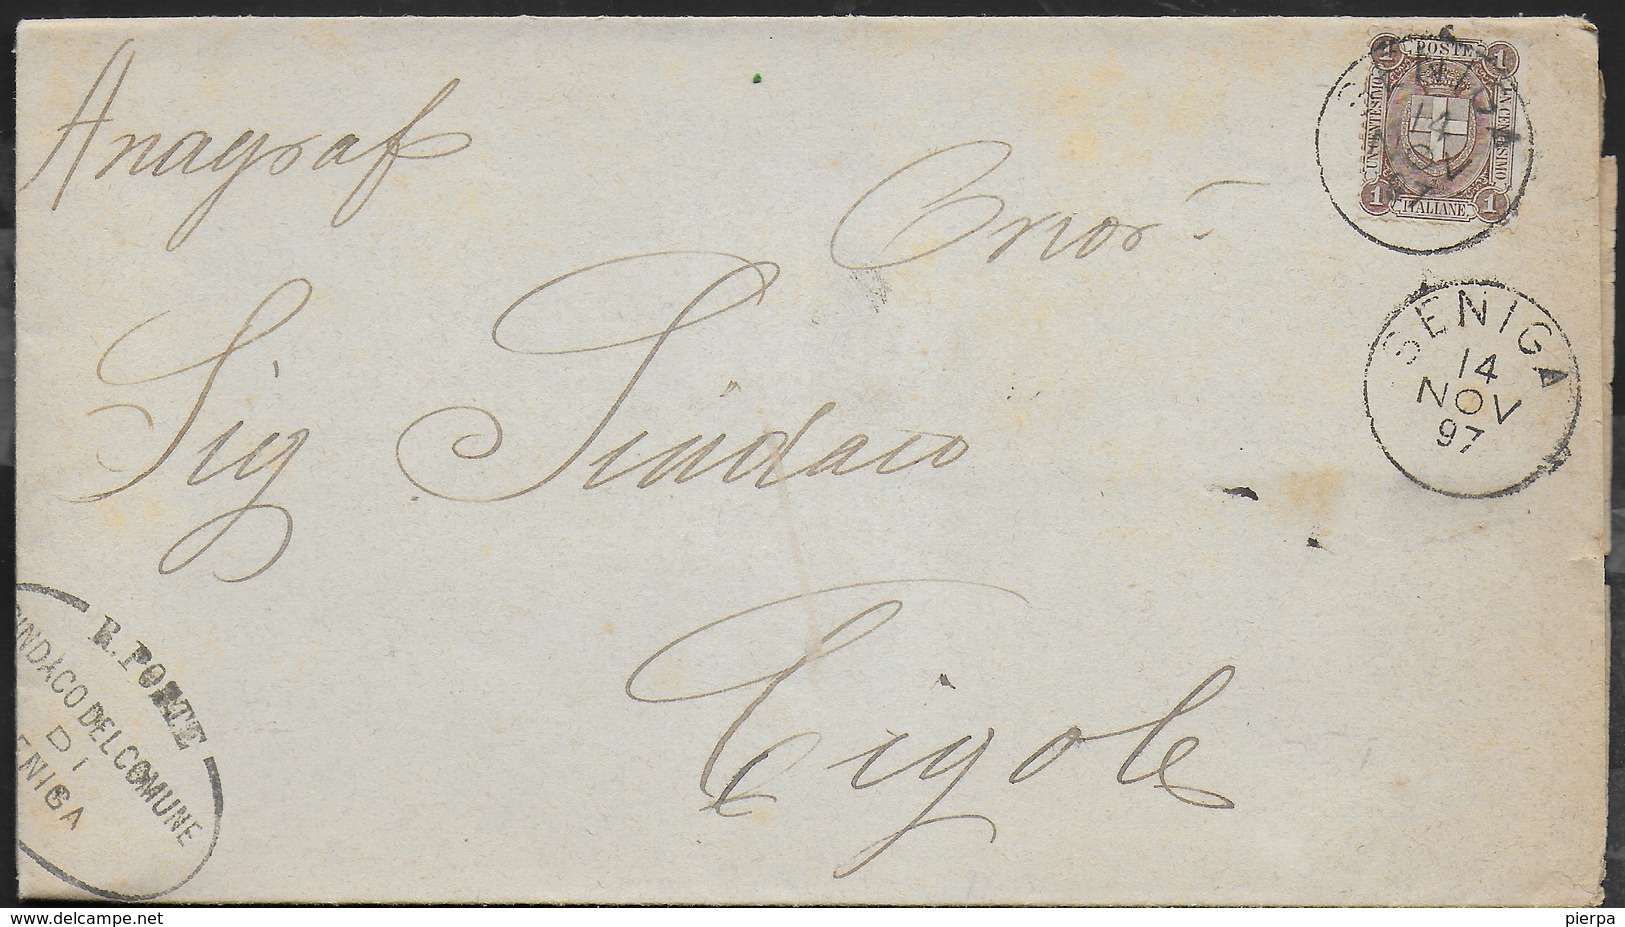 Anagraf
Onor.
Sig Sindaco
Cigole
1 POSTE 1
UN CENTESIMO
UN CENTESIMO
1 ITALIANE 1
SENIGA
14
NOV
97
SENIGA
14
NOV
97
R. POSTE
SINDACO DEL COMUNE
DI
ENIGA
www.delcampe.net
pierpa